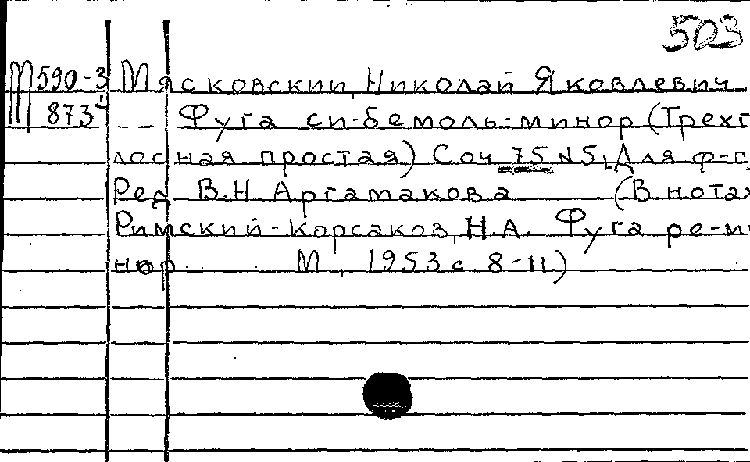 503
Ш590-3 Мясковский, Николай Яковлевич
873 Фуга си-бемоль-минор (Трехг
лосная простая) Соч 75 №5, Для ф-п
Ред В.Н Аргамакова (В нотах
Римский-Корсаков, Н.А. Фуга ре-ми
нор М, 1953 с 8-11)